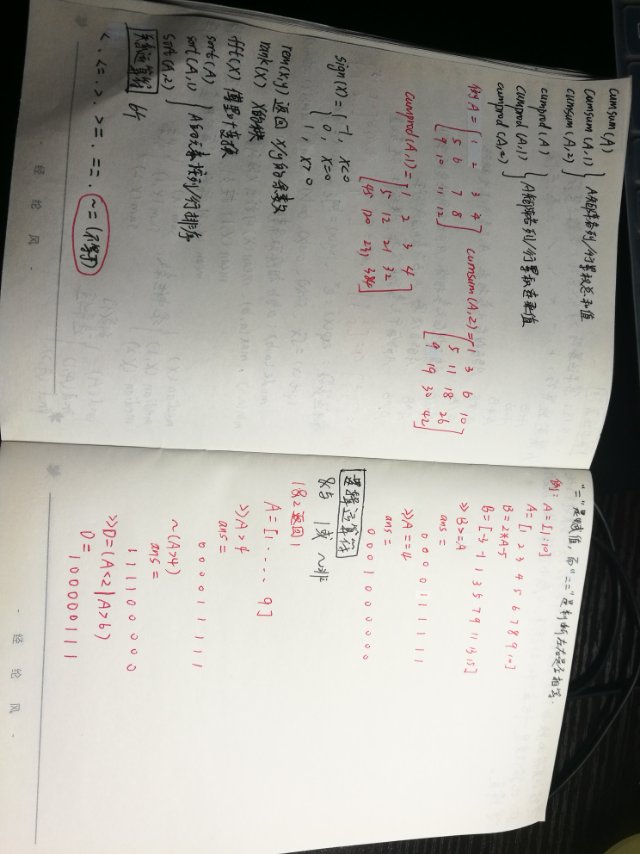 cumsum(A)
cumsum(A,1) } A矩阵各列/行累积总和值
cumsum(A,2)
cumprod(A)
cumprod(A,1) } A矩阵各列/行累积连乘值
cumprod(A,2)
例 A=[1 2 3 4 cumsum(A,2)=[1 3 6 10
5 6 7 8 5 11 18 26
9 10 11 12] 9 19 30 42]
cumprod(A,1)=[1 2 3 4
5 12 21 32
45 120 231 384]
sign(x)={-1, x<0
0, x=0
1, x>0
rem(x,y) 返回 x/y的余数
rank(x) X的秩
fft(x) 傅里叶变换
sort(A)
sort(A,1) } A的元素按列/行排序
sort(A,2)
关系运算符 64
<. <=. >. >=. ==. ~=(不等于)
经纶风
"="是赋值,而"=="是判断左右是否相等.
例: A=[1:10]
A=[1 2 3 4 5 6 7 8 9 10]
B=2*A-5
B=[-3 -1 1 3 5 7 9 11 13 15]
>>B>=A
ans=
0 0 0 0 1 1 1 1 1 1
>>A==4
ans=
0 0 0 1 0 0 0 0 0 0
逻辑运算符
&与 |或 ~非
1&2返回1
A=[1 ····· 9]
>>A>4
ans=
0 0 0 0 1 1 1 1 1
~(A>4)
ans=
1 1 1 1 0 0 0 0 0
>>D=(A<2|A>6)
D=
1 0 0 0 0 0 1 1 1
经纶风